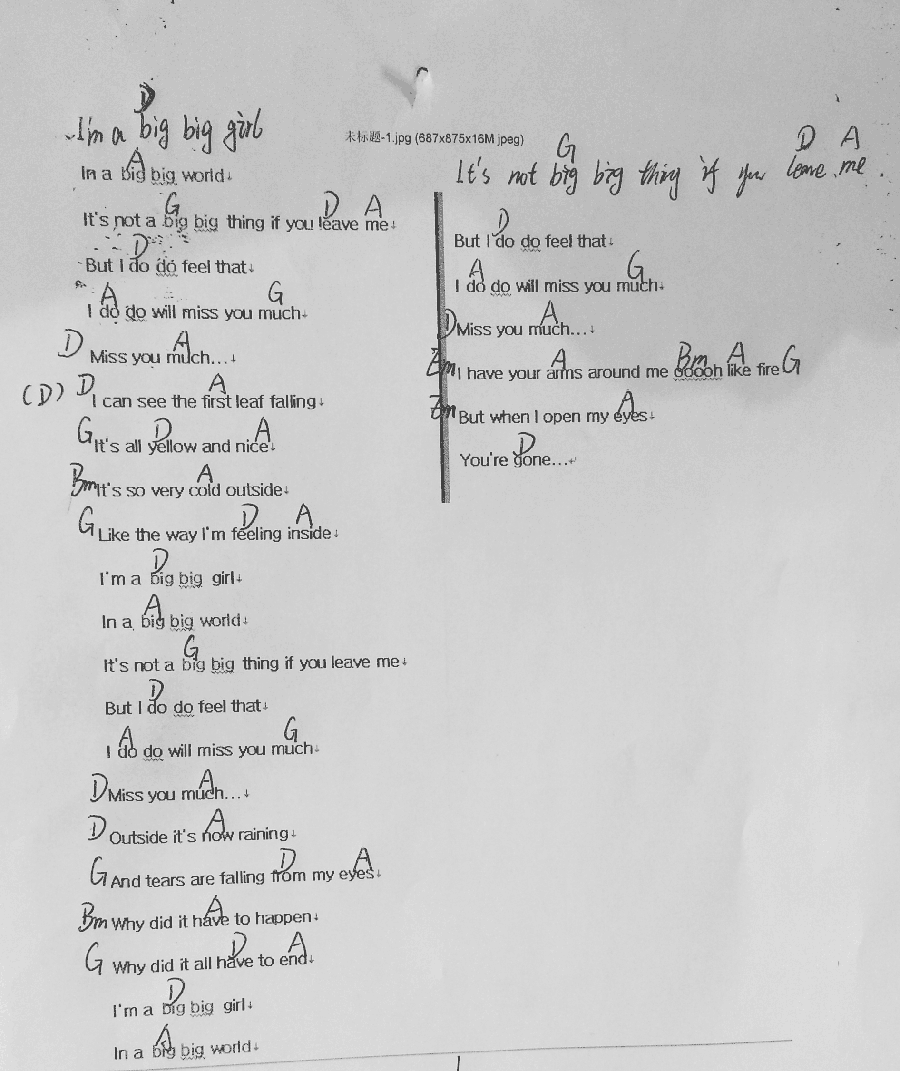 D
I'm a big big girl
A
In a big big world↓
G D A
It's not a big big thing if you leave me↓
D
But I do do feel that↓
A G
I do do will miss you much↓
D A
Miss you much...↓
(D) D A
I can see the first leaf falling↓
G D A
It's all yellow and nice↓
Bm A
It's so very cold outside↓
G D A
Like the way I'm feeling inside↓
D
I'm a big big girl↓
A
In a big big world↓
G
It's not a big big thing if you leave me↓
D
But I do do feel that↓
A G
I do do will miss you much↓
D A
Miss you much...↓
D A
Outside it's now raining↓
G D A
And tears are falling from my eyes↓
Bm A
Why did it have to happen↓
G D A
Why did it all have to end↓
D
I'm a big big girl↓
A
In a big big world↓
未标题-1.jpg (687x875x16M jpeg)
G D A
It's not big big thing if you leave me.
D
But I do do feel that↓
A G
I do do will miss you much↓
D A
Miss you much...↓
Em A Bm A G
I have your arms around me ooooh like fire
Em A
But when I open my eyes↓
D
You're gone...↵